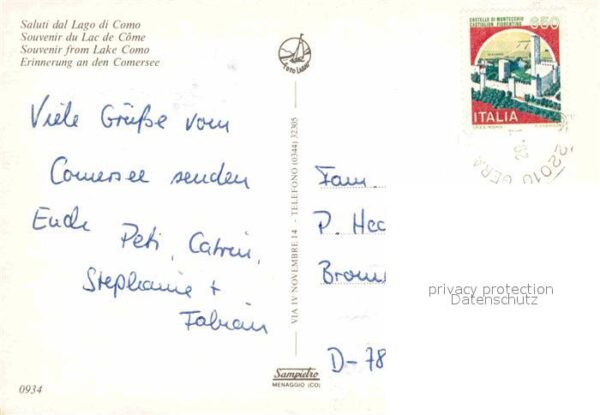 Saluti dal Lago di Como
Souvenir du Lac de Côme
Souvenir from Lake Como
Erinnerung an den Comersee
Viele Grüße vom
Comersee senden
Euch Peti, Catrin,
Stephanie +
Fabian
0934
FOTO LARIO
VIA IV NOVEMBRE 14 - TELEFONO (0344) 32305
Sampietro
MENAGGIO (CO)
CASTELLO DI MONTECCHIO
CASTIGLION FIORENTINO
650
ITALIA
22010 GERA
92
Fam.
P. Hec
D-78
privacy protection
Datenschutz